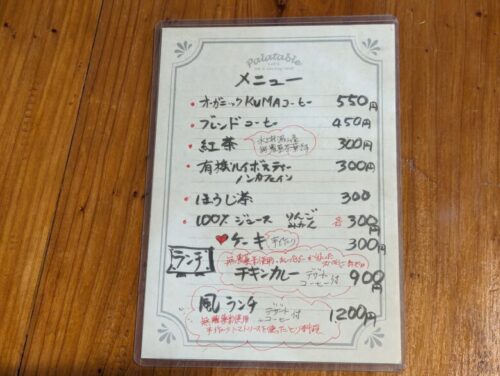 Palatable
メニュー
・オーガニックKUMAコーヒー 550円
・ブレンドコーヒー 450円
♥紅茶 300円
・有機ルイボスティー 300円
ノンカフェイン
・ほうじ茶 300
・100%ジュース りんご みかん 各300円
♥ケーキ 手作り 300円
ランチ
チキンカレー デザート コーヒー付 900円
風ランチ デザート コーヒー付 1200円